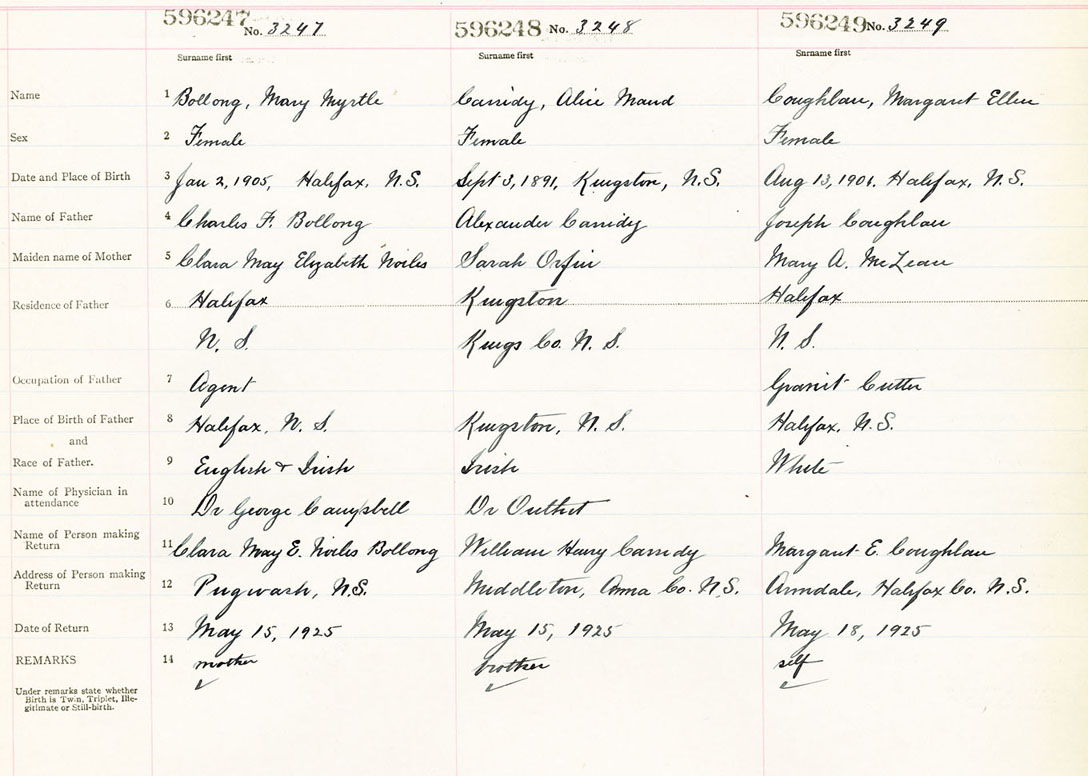 596247 No. 3247 596248 No. 3248 596249 No. 3249
Surname first Surname first Surname first
Name 1 Bollong, Mary Myrtle Cassidy, Alice Maud Coughlan, Margaret Ellen
Sex 2 Female Female Female
Date and Place of Birth 3 Jan 2, 1905, Halifax, N.S. Sept 3, 1891, Kingston, N.S. Aug 13, 1901. Halifax, N.S.
Name of Father 4 Charles F. Bollong Alexander Cassidy Joseph Coughlan
Maiden name of Mother 5 Clara May Elizabeth Noiles Sarah Orfin Mary A. McLean
Residence of Father 6 Halifax Kingston Halifax
N. S. Kings Co. N. S. N. S.
Occupation of Father 7 Agent Granit Cutter
Place of Birth of Father 8 Halifax, N. S. Kingston, N. S. Halifax, N. S.
and
Race of Father. 9 English & Irish Irish White
Name of Physician in
attendance 10 Dr George Campbell Dr Outhit
Name of Person making
Return 11 Clara May E. Noiles Bollong William Henry Cassidy Margaret E. Coughlan
Address of Person making
Return 12 Pugwash, N.S. Middleton, Anna Co. N.S. Armdale, Halifax Co. N.S.
Date of Return 13 May 15, 1925 May 15, 1925 May 18, 1925
REMARKS 14 mother brother self
Under remarks state whether
Birth is Twin, Triplet, Ille-
gitimate or Still-birth.